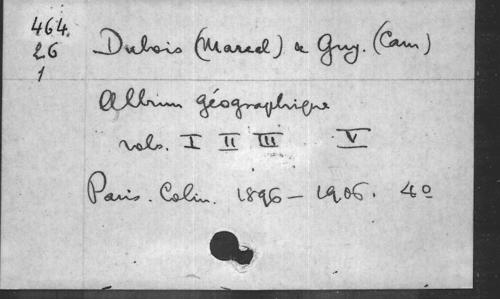 464.
26
1
Dubois (Marcel) & Guy. (Cam)
Album géographique
vols. I II III V
Paris. Colin. 1896 – 1906. 4º